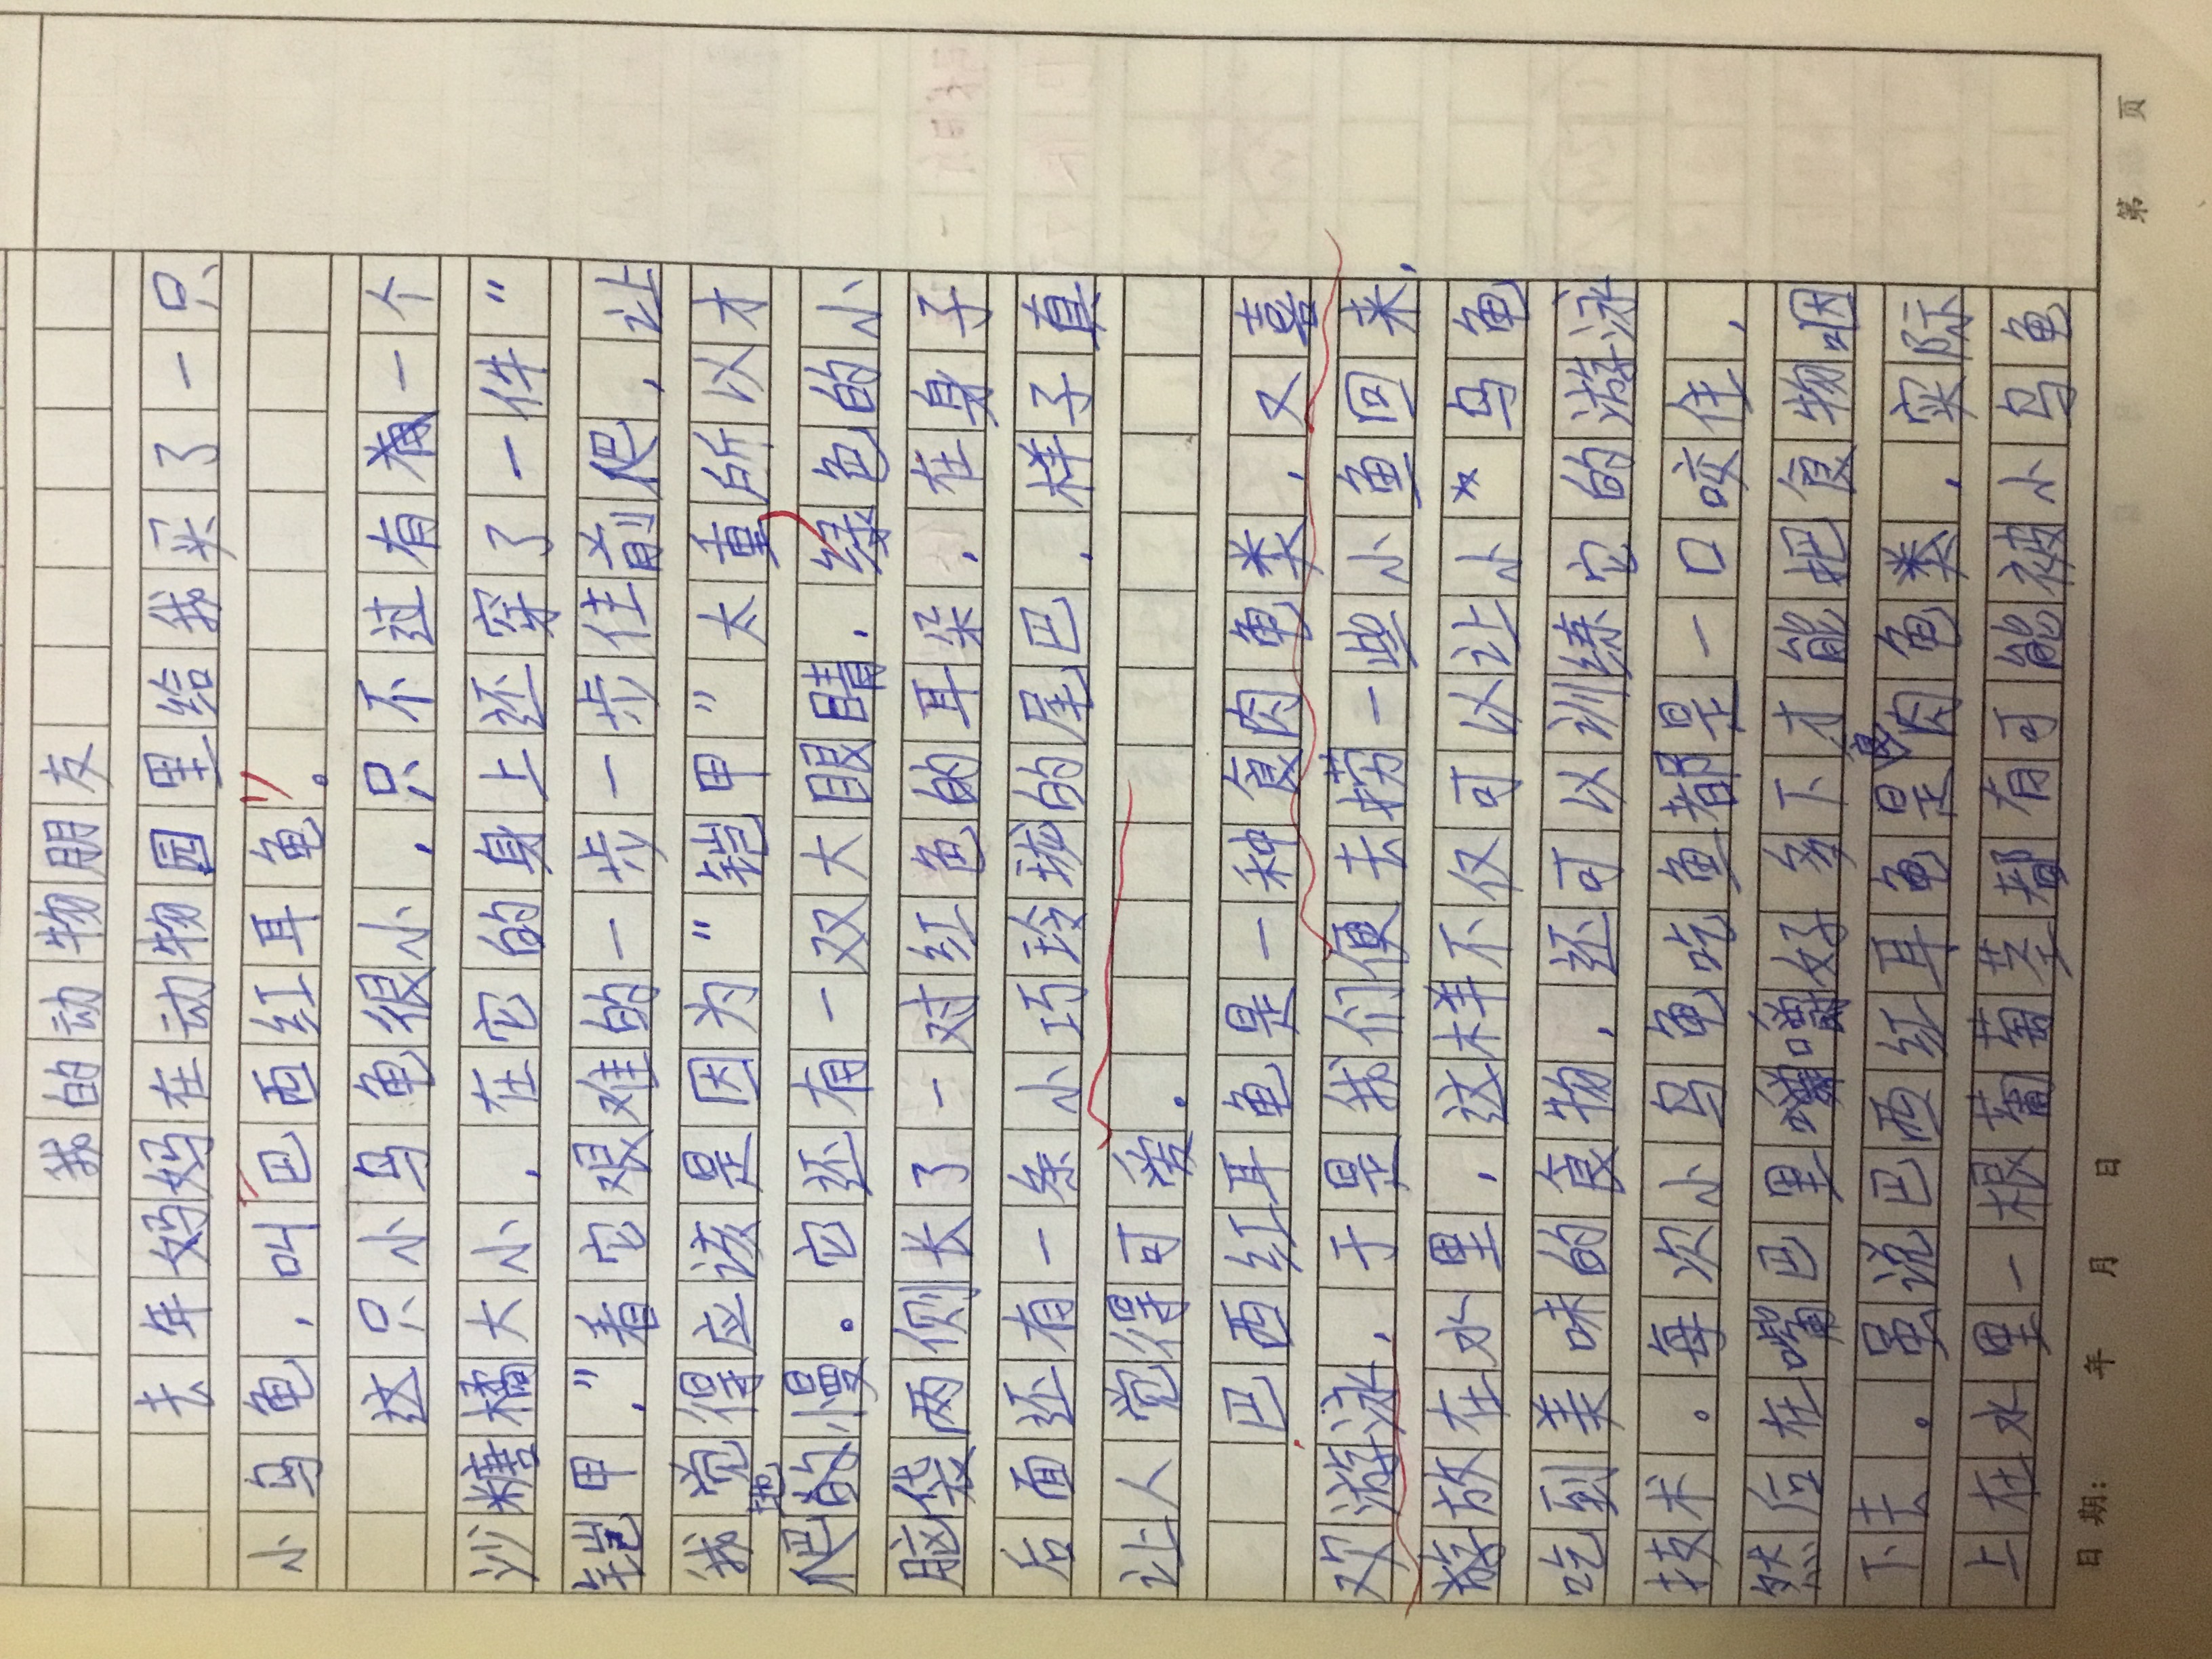 我的动物朋友
去年妈妈在动物园里给我买了一只
小乌龟，叫“巴西红耳龟”。
这只小乌龟很小，只不过有一个
沙糖橘大小，在它的身上还穿了一件“
铠甲，”看它艰难的一步一步往前爬，让
我觉得应该是因为“铠甲”太重所以才
爬地慢。它还有一双大眼睛，绿色的小
脑袋两侧长了一对红色的耳朵，在身子
后面还有一条小巧玲珑的尾巴，样子真
让人觉得可爱。
巴西红耳龟是一种食肉龟类，又喜
欢游泳，于是我们便去捞一些小鱼回来，
放在水里，这样不仅可以让小乌龟
吃到美味的食物，还可以训练它的游泳
技术。每次小乌龟吃鱼都是一口咬住，
然后在嘴巴里嚼好多下才能把食物咽
下去。虽说巴西红耳龟是食肉龟类，实际
上在水里一根葡萄茎都有可能被小乌龟
日期： 年 月 日 第 页